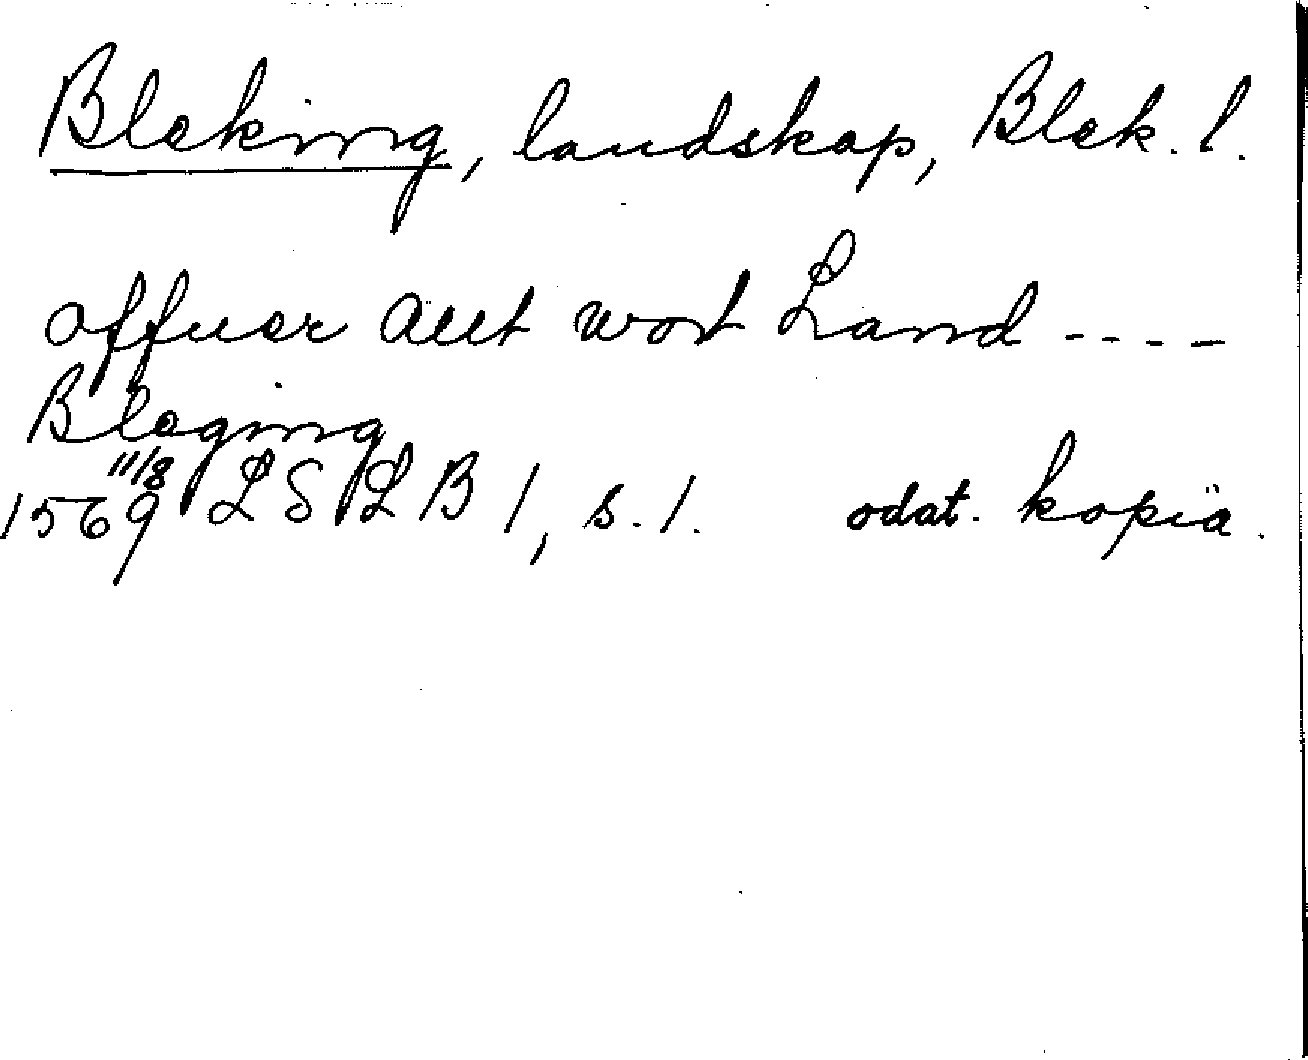 Bleking, landskap, Blek. l.
offuer allt wort Land ----
Bleging
1569 11/8 LSLB 1, s. 1. odat. kopia.